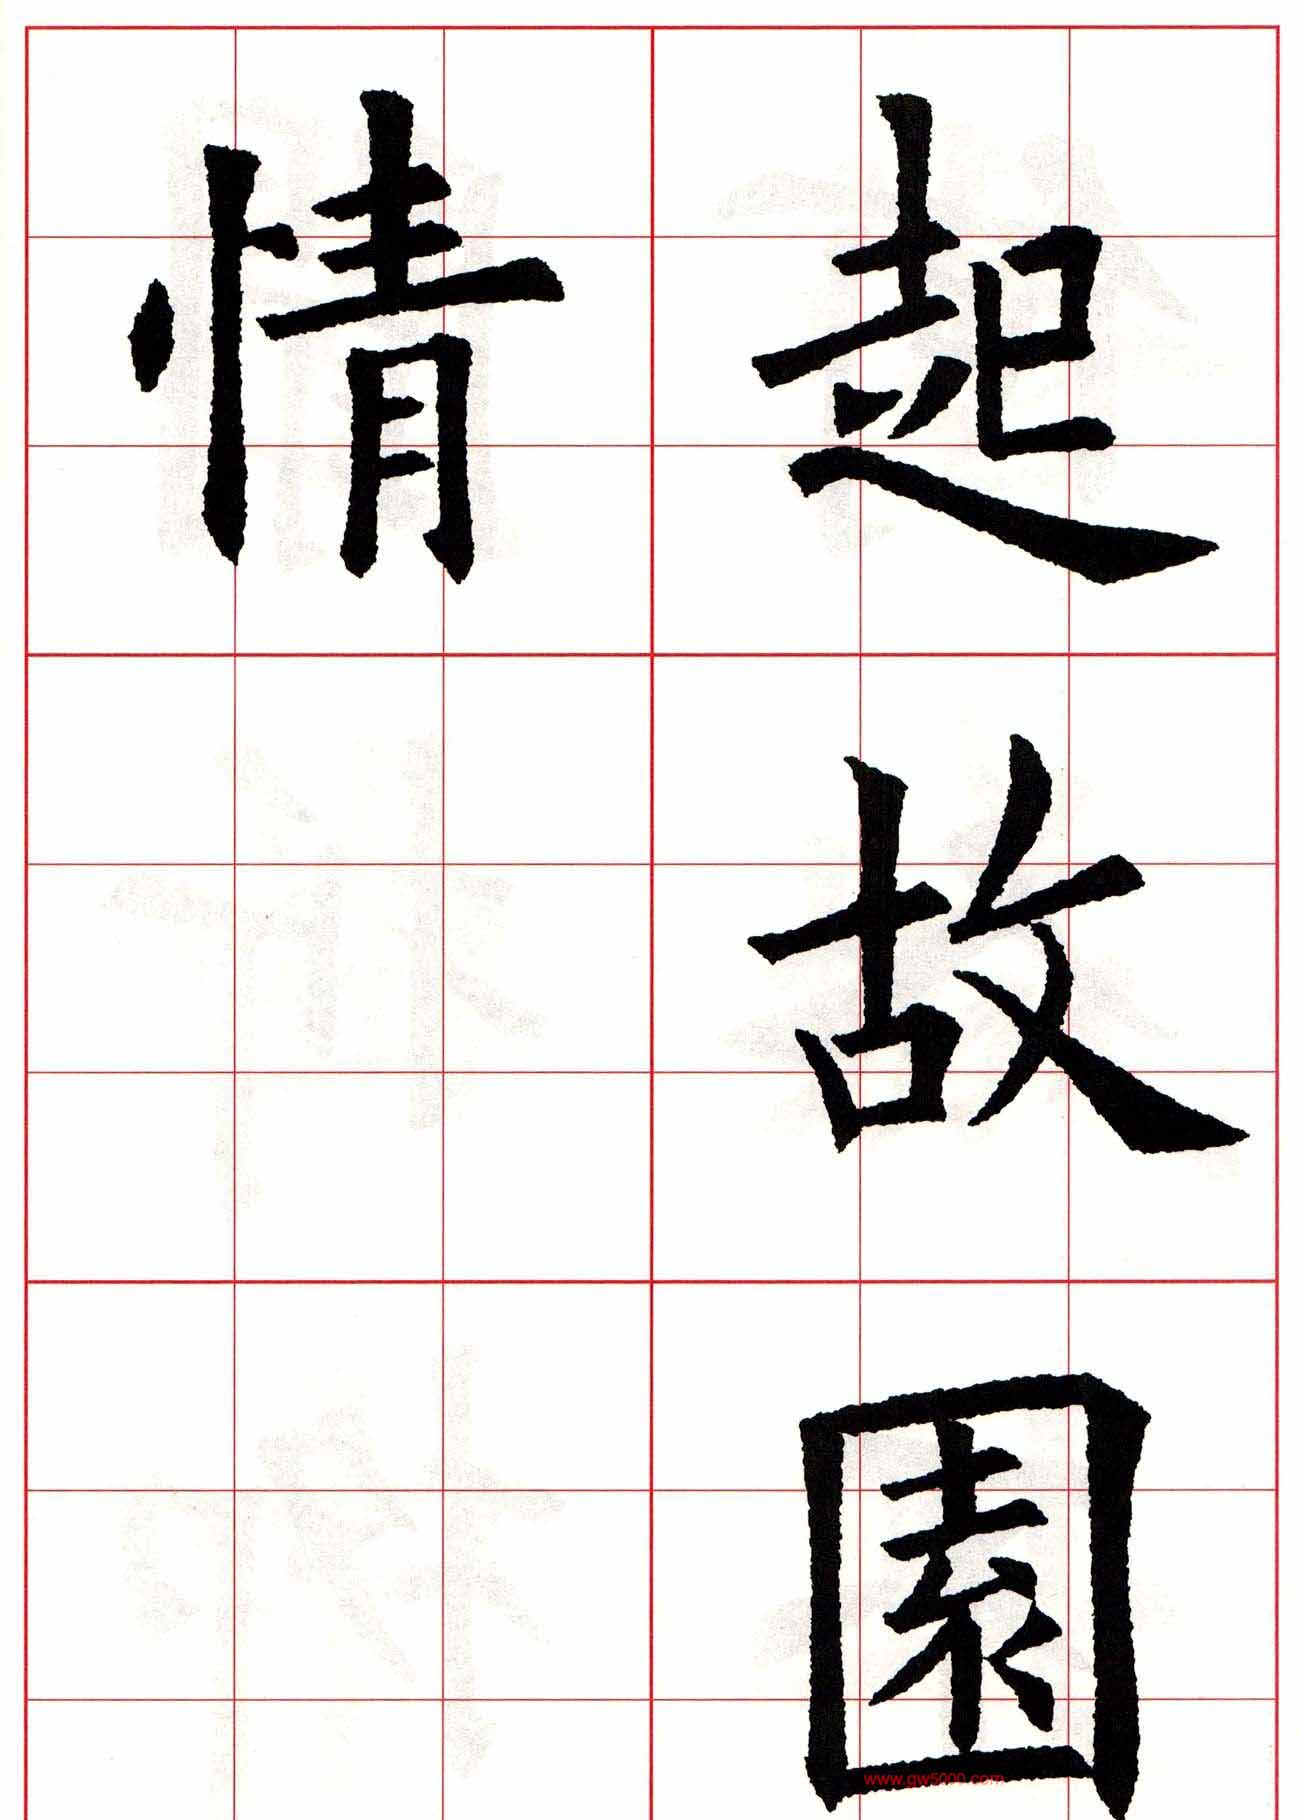 起故園
情
www.gw5000.com